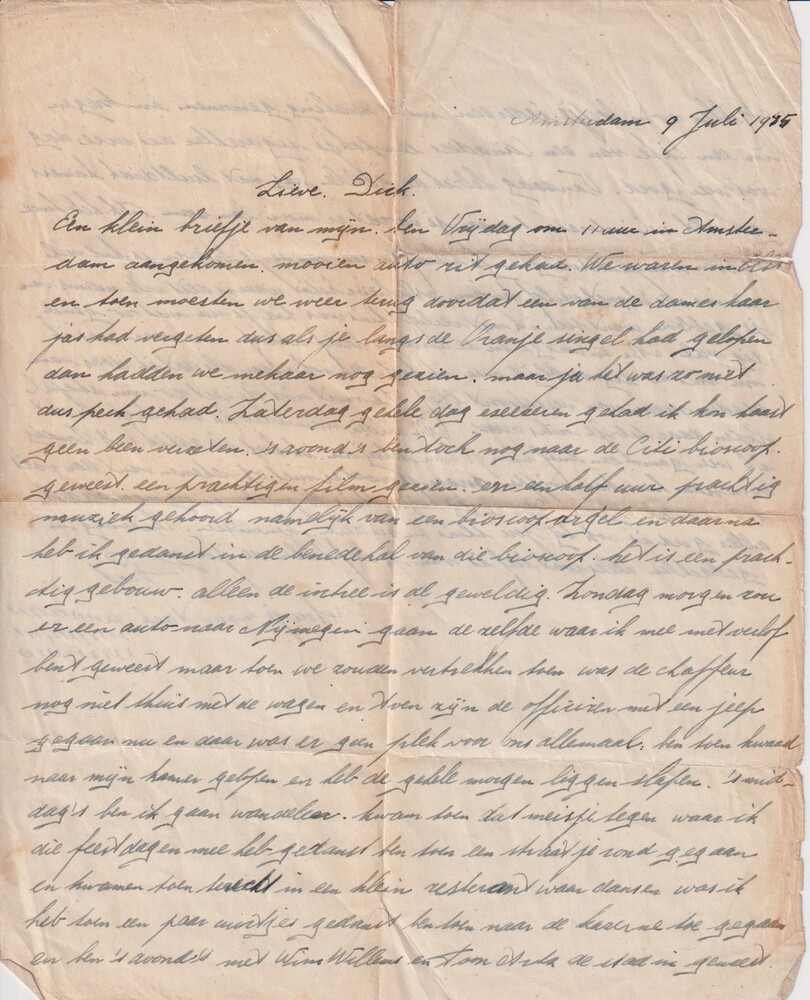 Amsterdam 9 Juli 1945
Lieve. Dick.
Een klein briefje van mijn. ben Vrijdag om 11 uur in Amster-
dam aangekomen. mooien auto rit gehad. We waren in
en toen moesten we weer terug doordat een van de dames haar
jas had vergeten dus als je langs de Oranje singel had gelopen
dan hadden we mekaar nog gezien. maar ja het was zo niet
dus pech gehad. Zaterdag gehele dag gehad ik kon haast
geen been verzeten. 's avond's ben toch nog naar de Citi bioscoop.
geweest. een prachtigen film gezien. en een half uur prachtig
muziek gehoord namelijk van een bioscoop orgel en daarna
heb ik gedanst in de benedehal van die bioscoop. het is een prach-
tig gebouw. alleen de intree is al geweldig. Zondag morgen zou
er een auto naar Nijmegen gaan de zelfde waar ik mee met verlof
bent geweest maar toen we zouden vertrekken toen was de chaffeur
nog niet thuis met de wagen en toen zijn de officiren met een jeep
gegaan nu en daar was er geen plek voor ons allemaal. ben toen kwaad
naar mijn kamer gelopen en heb de gehele morgen liggen slapen. 's mid-
dag's ben ik gaan wandelen. kwam toen dat meisje tegen waar ik
die feestdagen mee heb gedanst ben toen een straatje rond gegaan
en kwamen toen terecht in een klein resterant waar dansen was ik
heb toen een paar gedanst ben toen naar de kazerne toe gegaan
en ben 's avond's met Wim Willems en Tom de stad in geweest.